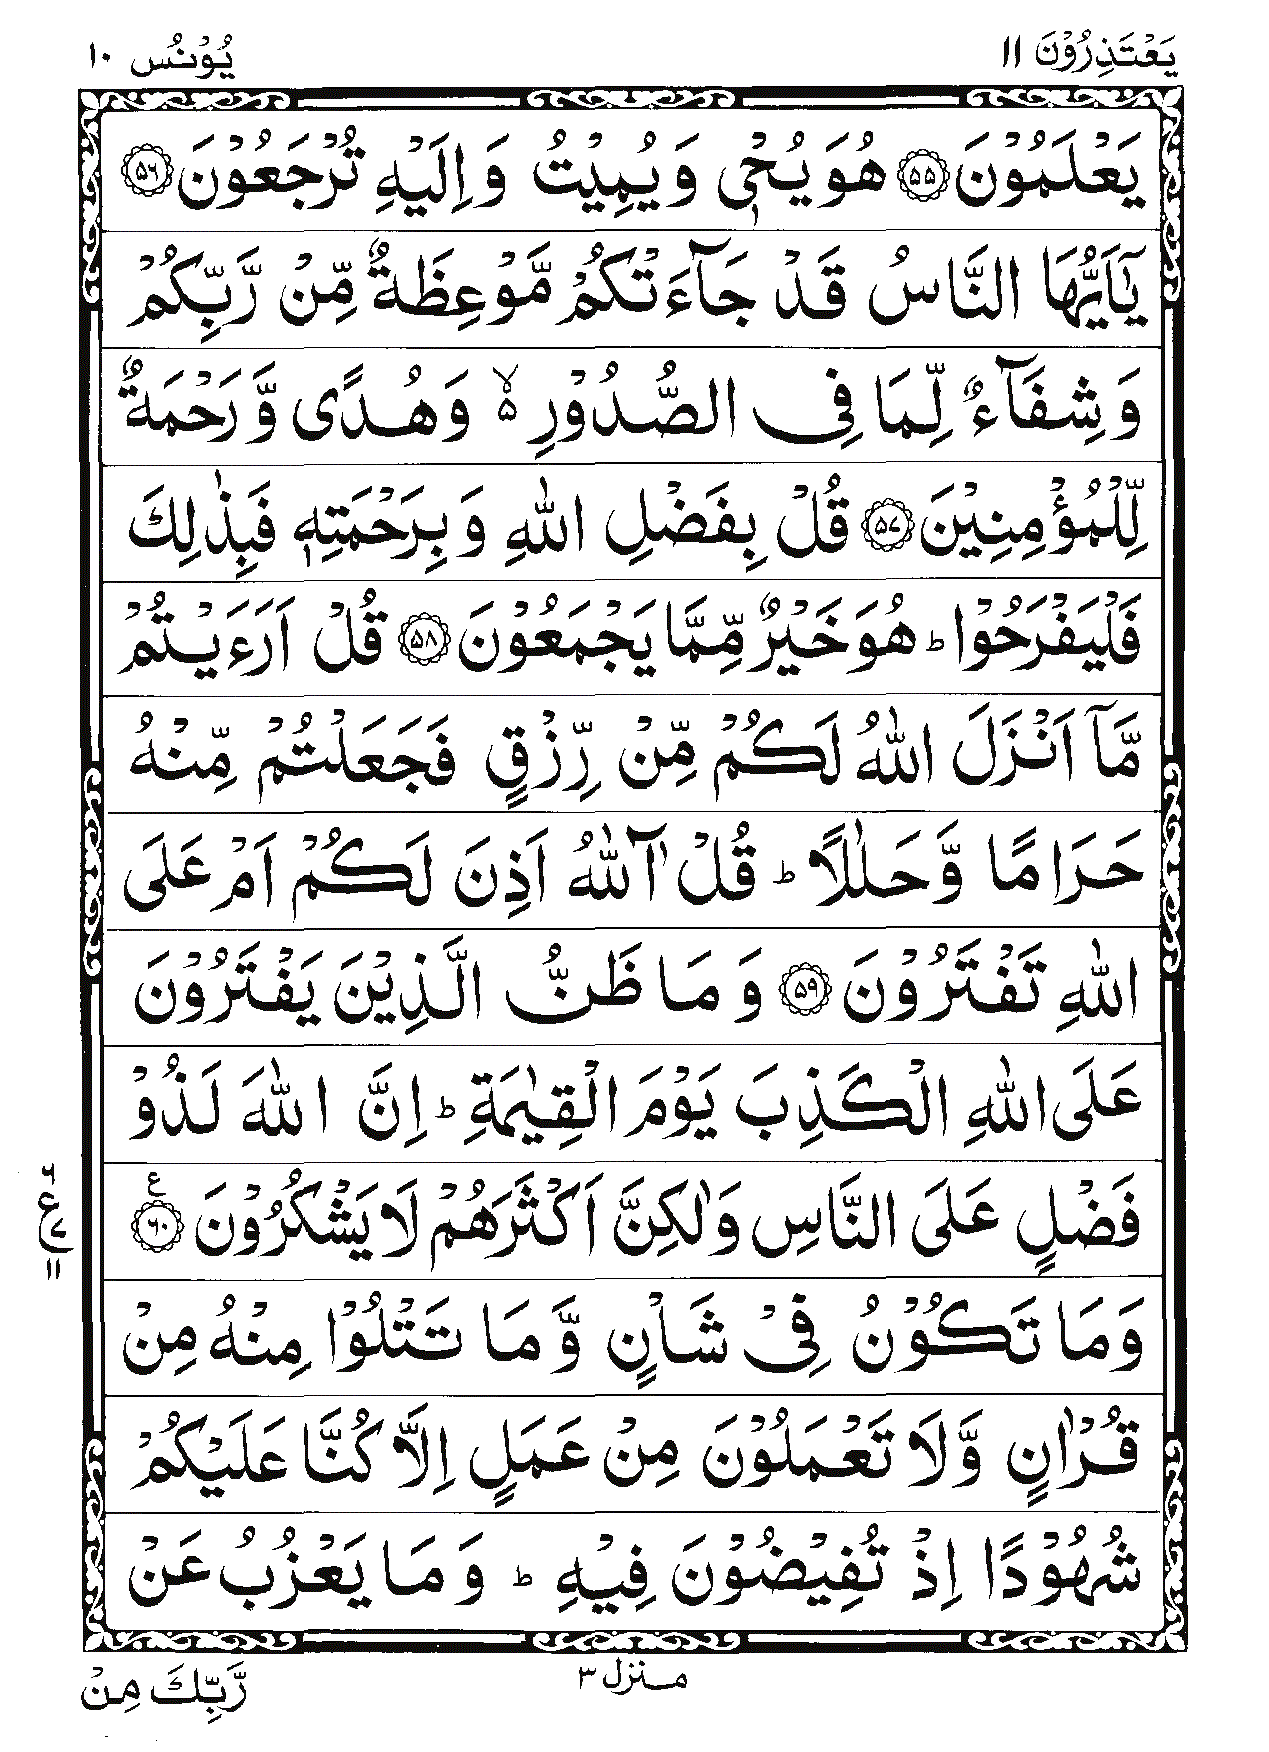 يَعْتَذِرُوْنَ ١١
يُوْنُسَ ١٠
يَعْلَمُوْنَ ﴿۵۵﴾ هُوَ يُحْيٖ وَ يُمِيْتُ وَ اِلَيْهِ تُرْجَعُوْنَ ﴿۵۶﴾
يٰۤاَيُّهَا النَّاسُ قَدْ جَآءَتْكُمْ مَّوْعِظَةٌ مِّنْ رَّبِّكُمْ
وَ شِفَآءٌ لِّمَا فِى الصُّدُوْرِ ۙ۵ وَ هُدًى وَّ رَحْمَةٌ
لِّلْمُؤْمِنِيْنَ ﴿۵۷﴾ قُلْ بِفَضْلِ اللّٰهِ وَ بِرَحْمَتِهٖ فَبِذٰلِكَ
فَلْيَفْرَحُوْا ؕ هُوَ خَيْرٌ مِّمَّا يَجْمَعُوْنَ ﴿۵۸﴾ قُلْ اَرَءَيْتُمْ
مَّاۤ اَنْزَلَ اللّٰهُ لَكُمْ مِّنْ رِّزْقٍ فَجَعَلْتُمْ مِّنْهُ
حَرَامًا وَّ حَلٰلًا ؕ قُلْ آٰللّٰهُ اَذِنَ لَكُمْ اَمْ عَلَى
اللّٰهِ تَفْتَرُوْنَ ﴿۵۹﴾ وَ مَا ظَنُّ الَّذِيْنَ يَفْتَرُوْنَ
عَلَى اللّٰهِ الْكَذِبَ يَوْمَ الْقِيٰمَةِ ؕ اِنَّ اللّٰهَ لَذُوْ
فَضْلٍ عَلَى النَّاسِ وَلٰكِنَّ اَكْثَرَهُمْ لَا يَشْكُرُوْنَ ﴿۶۰﴾ ع
۶ ع ۷ ١١
وَمَا تَكُوْنُ فِىْ شَاْنٍ وَّ مَا تَتْلُوْا مِنْهُ مِنْ
قُرْاٰنٍ وَّ لَا تَعْمَلُوْنَ مِنْ عَمَلٍ اِلَّا كُنَّا عَلَيْكُمْ
شُهُوْدًا اِذْ تُفِيْضُوْنَ فِيْهِ ؕ وَ مَا يَعْزُبُ عَنْ
منزل ٣
رَّبِّكَ مِنْ